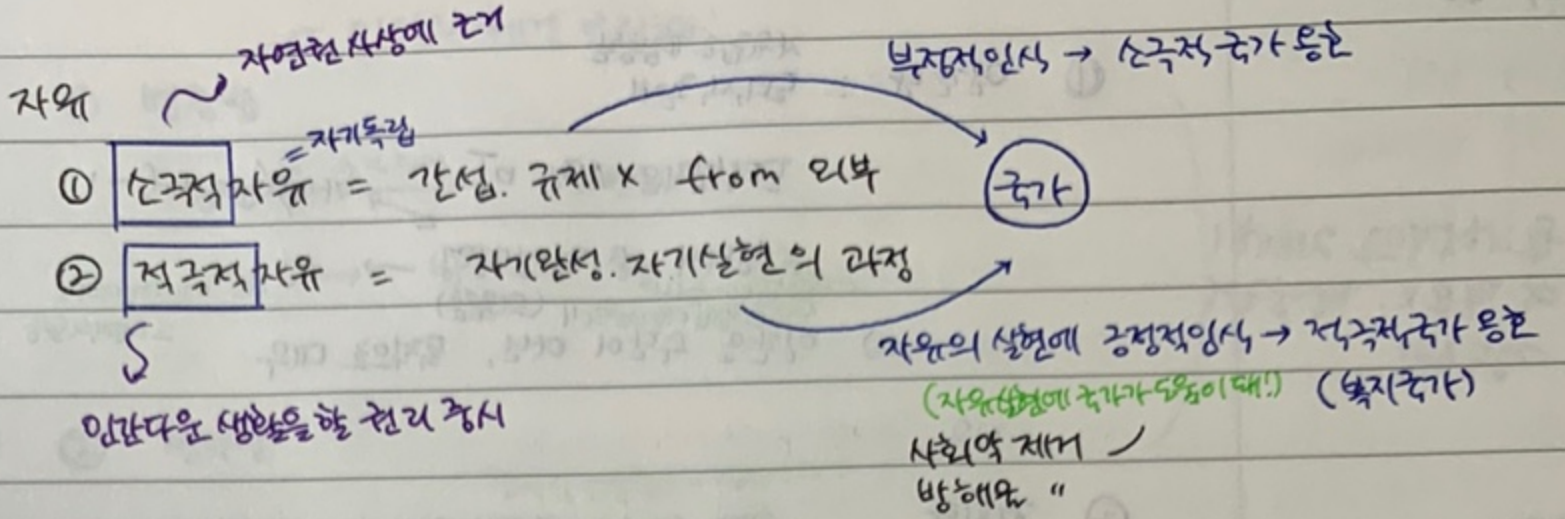 자연권 사상에 근거
부정적인식 → 소극적 국가 옹호
자유
= 자기독립
① 소극적 자유 = 간섭. 규제 x from 외부
국가
② 적극적 자유 = 자기완성. 자기실현의 과정
자유의 실현에 긍정적인식 → 적극적국가 옹호
(자유실현에 국가가 도움이 돼!) (복지국가)
인간다운 생활을 할 권리 중시
사회악 제거
방해물 〃